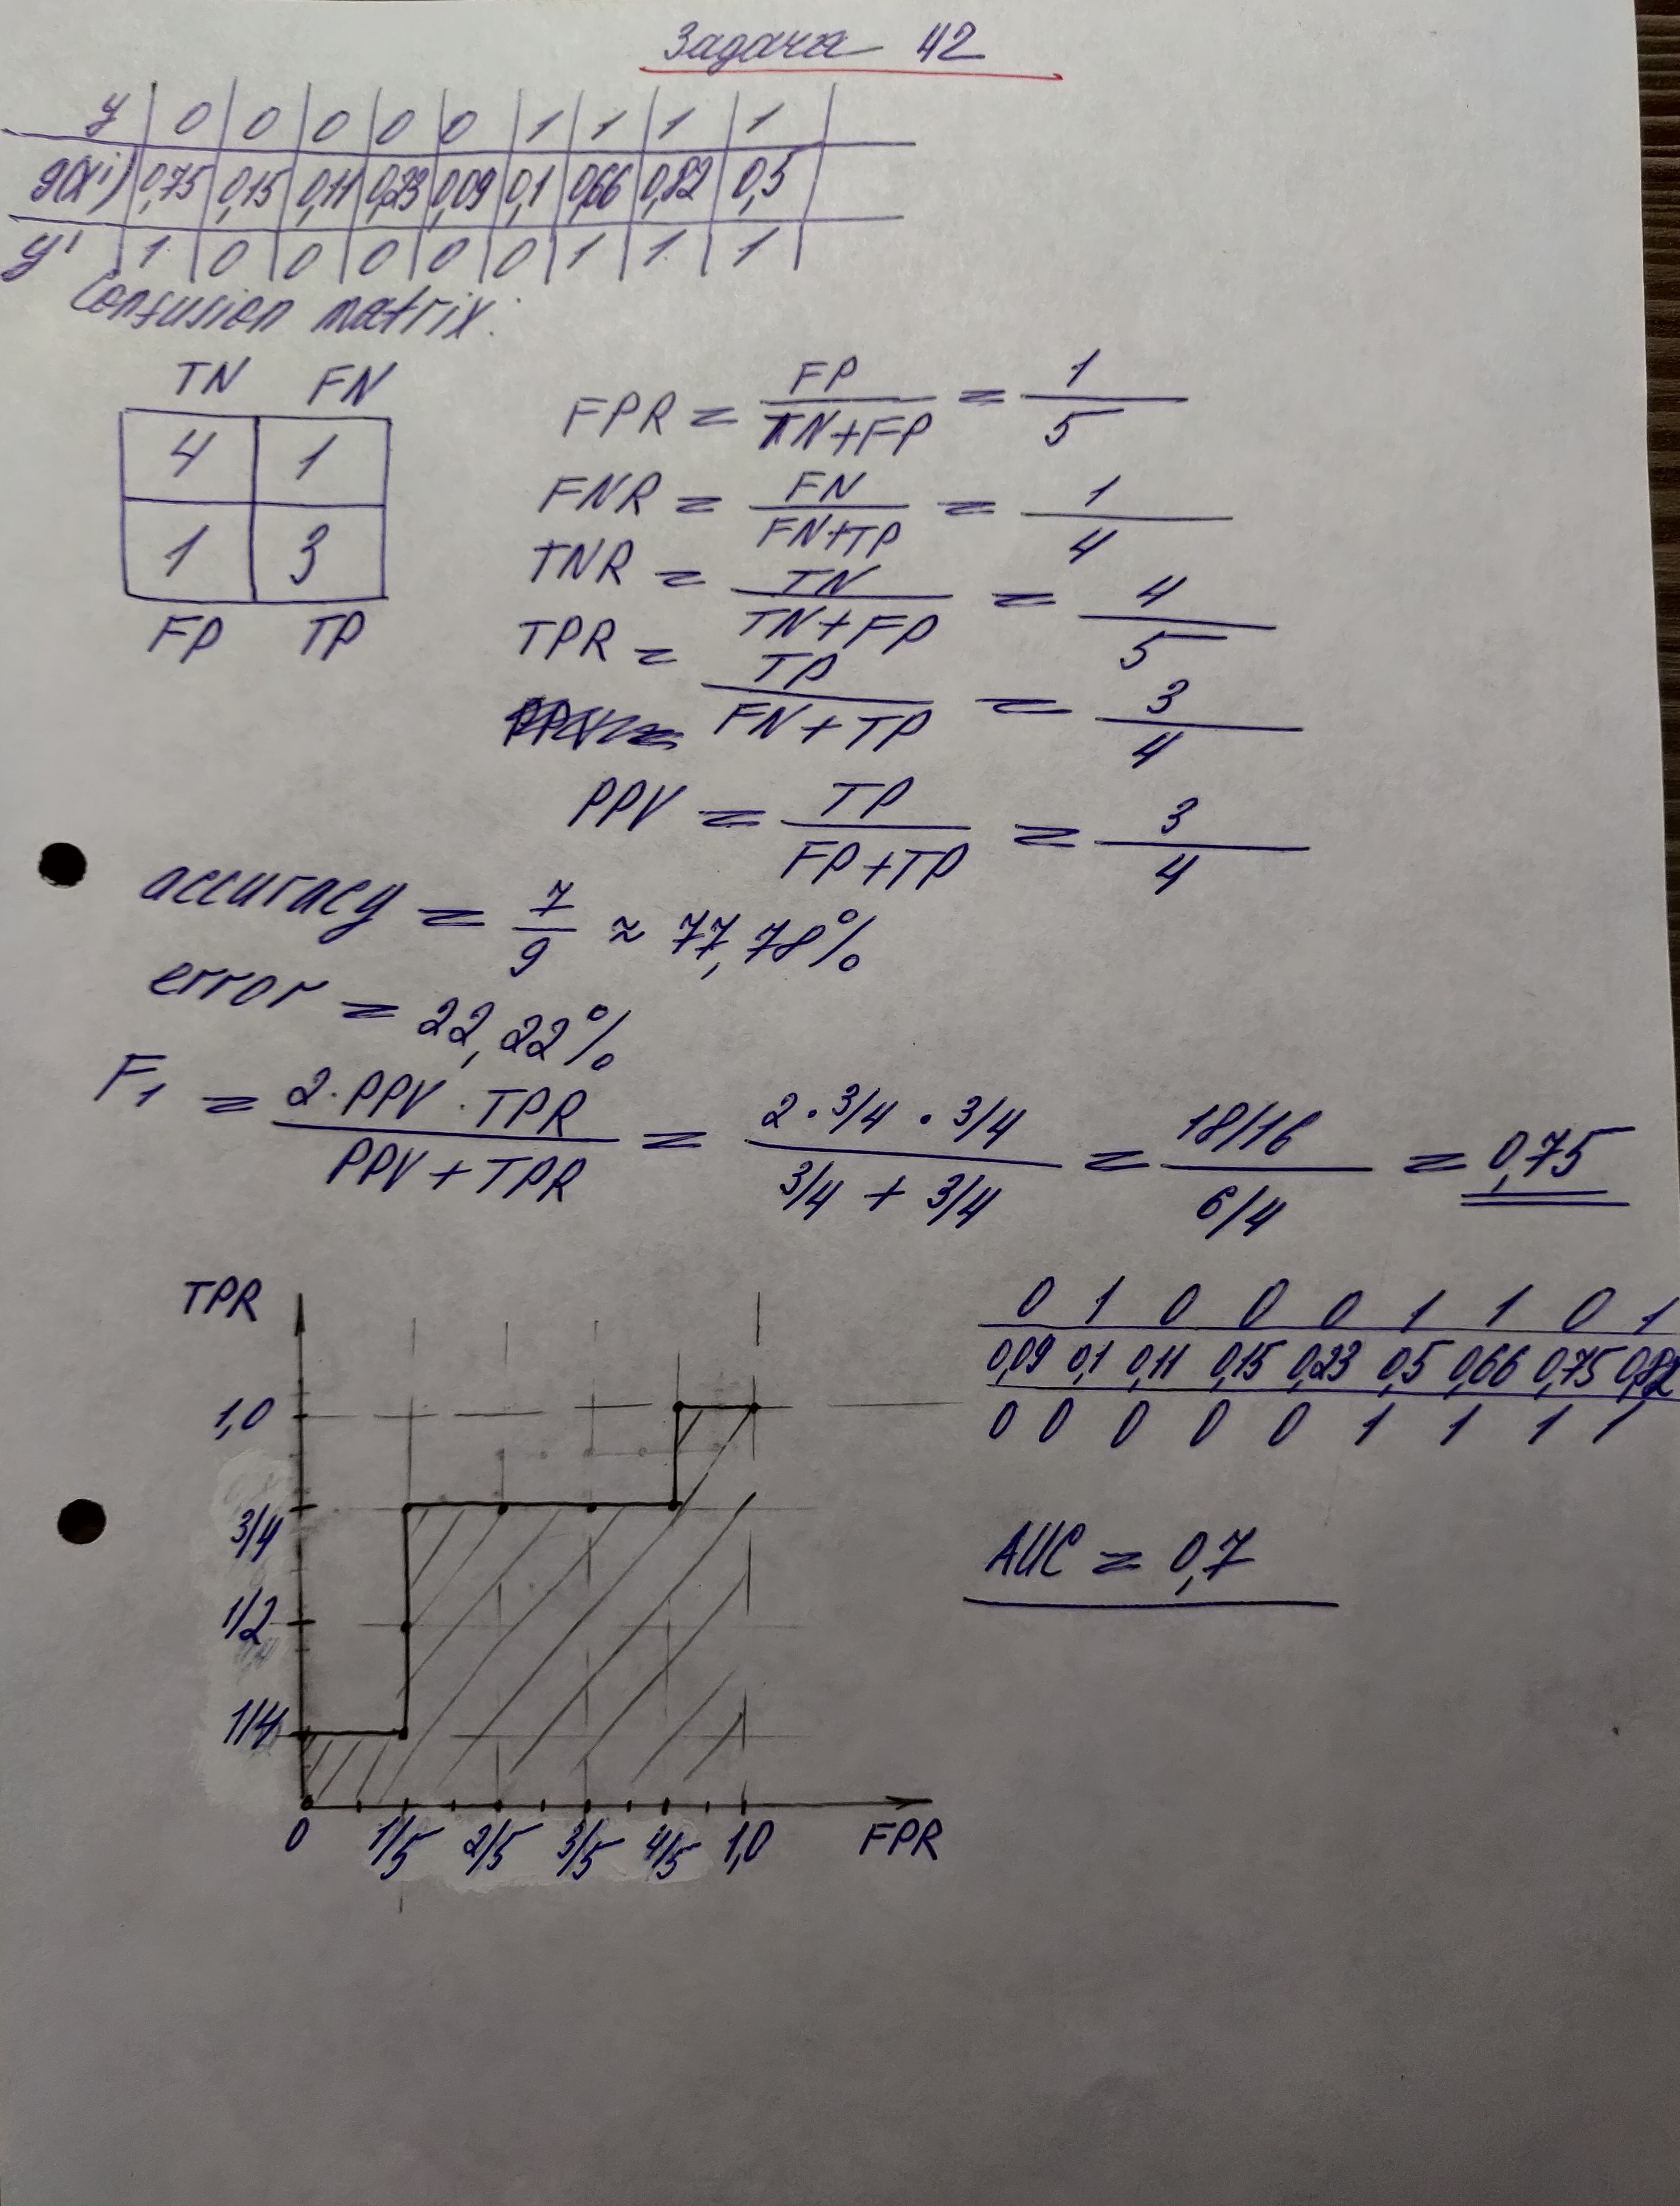 Задача 42
y 0 0 0 0 0 1 1 1 1
g(xⁱ) 0,75 0,15 0,11 0,23 0,09 0,1 0,66 0,82 0,5
y' 1 0 0 0 0 0 1 1 1
Confusion matrix:
TN FN
4 1
1 3
FP TP
FPR = FP / TN+FP = 1 / 5
FNR = FN / FN+TP = 1 / 4
TNR = TN / TN+FP = 4 / 5
TPR = TP / FN+TP = 3 / 4
PPV = TP / FP+TP = 3 / 4
accuracy = 7/9 ≈ 77,78%
error = 22,22%
F₁ = 2·PPV·TPR / PPV+TPR = 2·3/4·3/4 / 3/4+3/4 = 18/16 / 6/4 = 0,75
0 1 0 0 0 1 1 0 1
0,09 0,1 0,11 0,15 0,23 0,5 0,66 0,75 0,82
0 0 0 0 0 1 1 1 1
AUC = 0,7
TPR
1,0
3/4
1/2
1/4
0 1/5 2/5 3/5 4/5 1,0 FPR